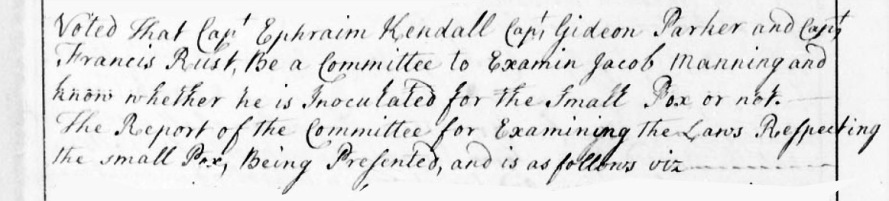 Voted that Capt Ephraim Kendall Capt, Gideon Parker and Capt,
Francis Rust, Be a Committee to Examin Jacob Manning and
know whether he is Inoculated for the Small Pox or not.
The Report of the Committee for Examining the Laws Respecting
the small Pox, Being Presented, and is as follows viz